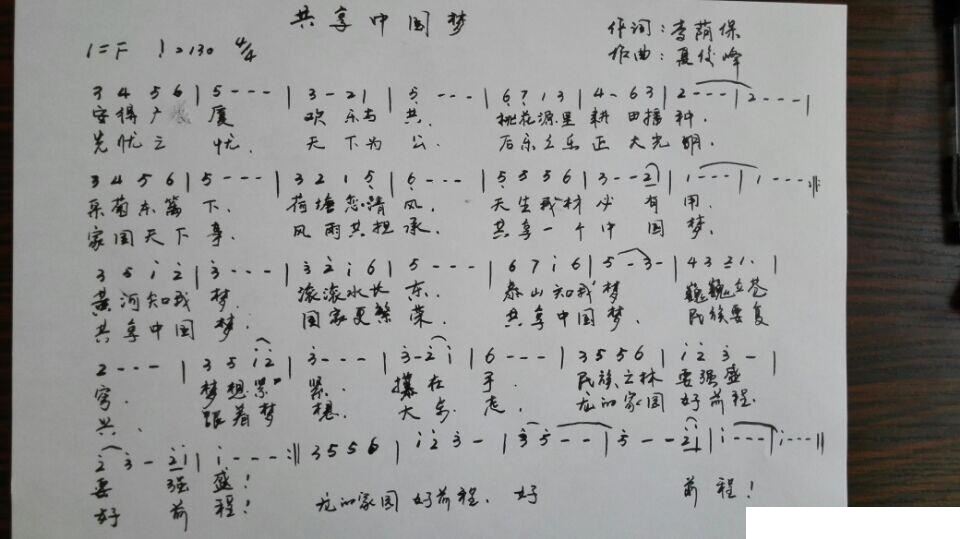 共享中国梦
作词：李荫保
1=F ♩=130 4/4 作曲：夏俊峰
3 4 5 6 | 5 - - - | 3 - 2 1 | 5 - - - | 6 7 1 3 | 4 - 6 3 | 2 - - - | 2 - - - |
安得广 厦 欢乐与共. 桃花源里耕田播种.
先忧之忧. 天下为公. 后乐之乐正大光明.
3 4 5 6 | 5 - - - | 3 2 1 5 | 6 - - - | 5 5 5 6 | 3 - - 2 | 1 - - - | 1 - - - :||
采菊东篱下. 荷塘 清风. 天生我材必有用.
家国天下事. 风雨共担承. 共享一个中国梦.
3 5 i 2 | 3 - - - | 3 2 i 6 | 5 - - - | 6 7 i 6 | 5 - 3 - | 4 3 2 1 · |
黄河知我梦. 滚滚水长东. 泰山知我梦 巍巍立苍
共享中国梦. 国家更繁荣. 共享中国梦. 民族要复
2 - - - | 3 5 i 2 | 3 - - - | 3 - 2 i | 6 - - - | 3 5 5 6 | i 2 3 - |
穹. 梦想紧 紧. 攥在手. 民族之林要强盛
兴. 跟着梦想. 大步走. 龙的家园好前程.
2 3 - 2 i | i - - - :|| 3 5 5 6 | i 2 3 - | 3 5 - - | 5 - - 2 i | i - - - | i - - - ||
要强盛！
好前程！ 龙的家园好前程. 好 前程！